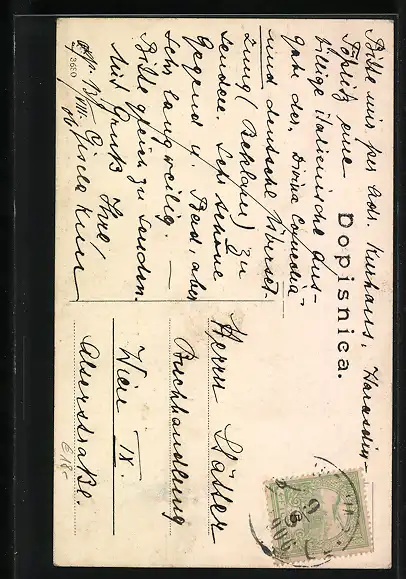 Bitte mir per Adr. Kurhaus, Warasdin-
Töplitz eine
billige italienische Aus-
gabe der „Divina Comedia"
und deutsche Überset-
zung (Reklam) zu
senden. Sehr schöne
Gegend u. Bad, aber
sehr langweilig. —
Bitte gleich zu senden.
Mit Gruß Ihre
Gisela
Dopisnica.
Herrn
Buchhandlung
Wien IX.
Alserstraße.
3660